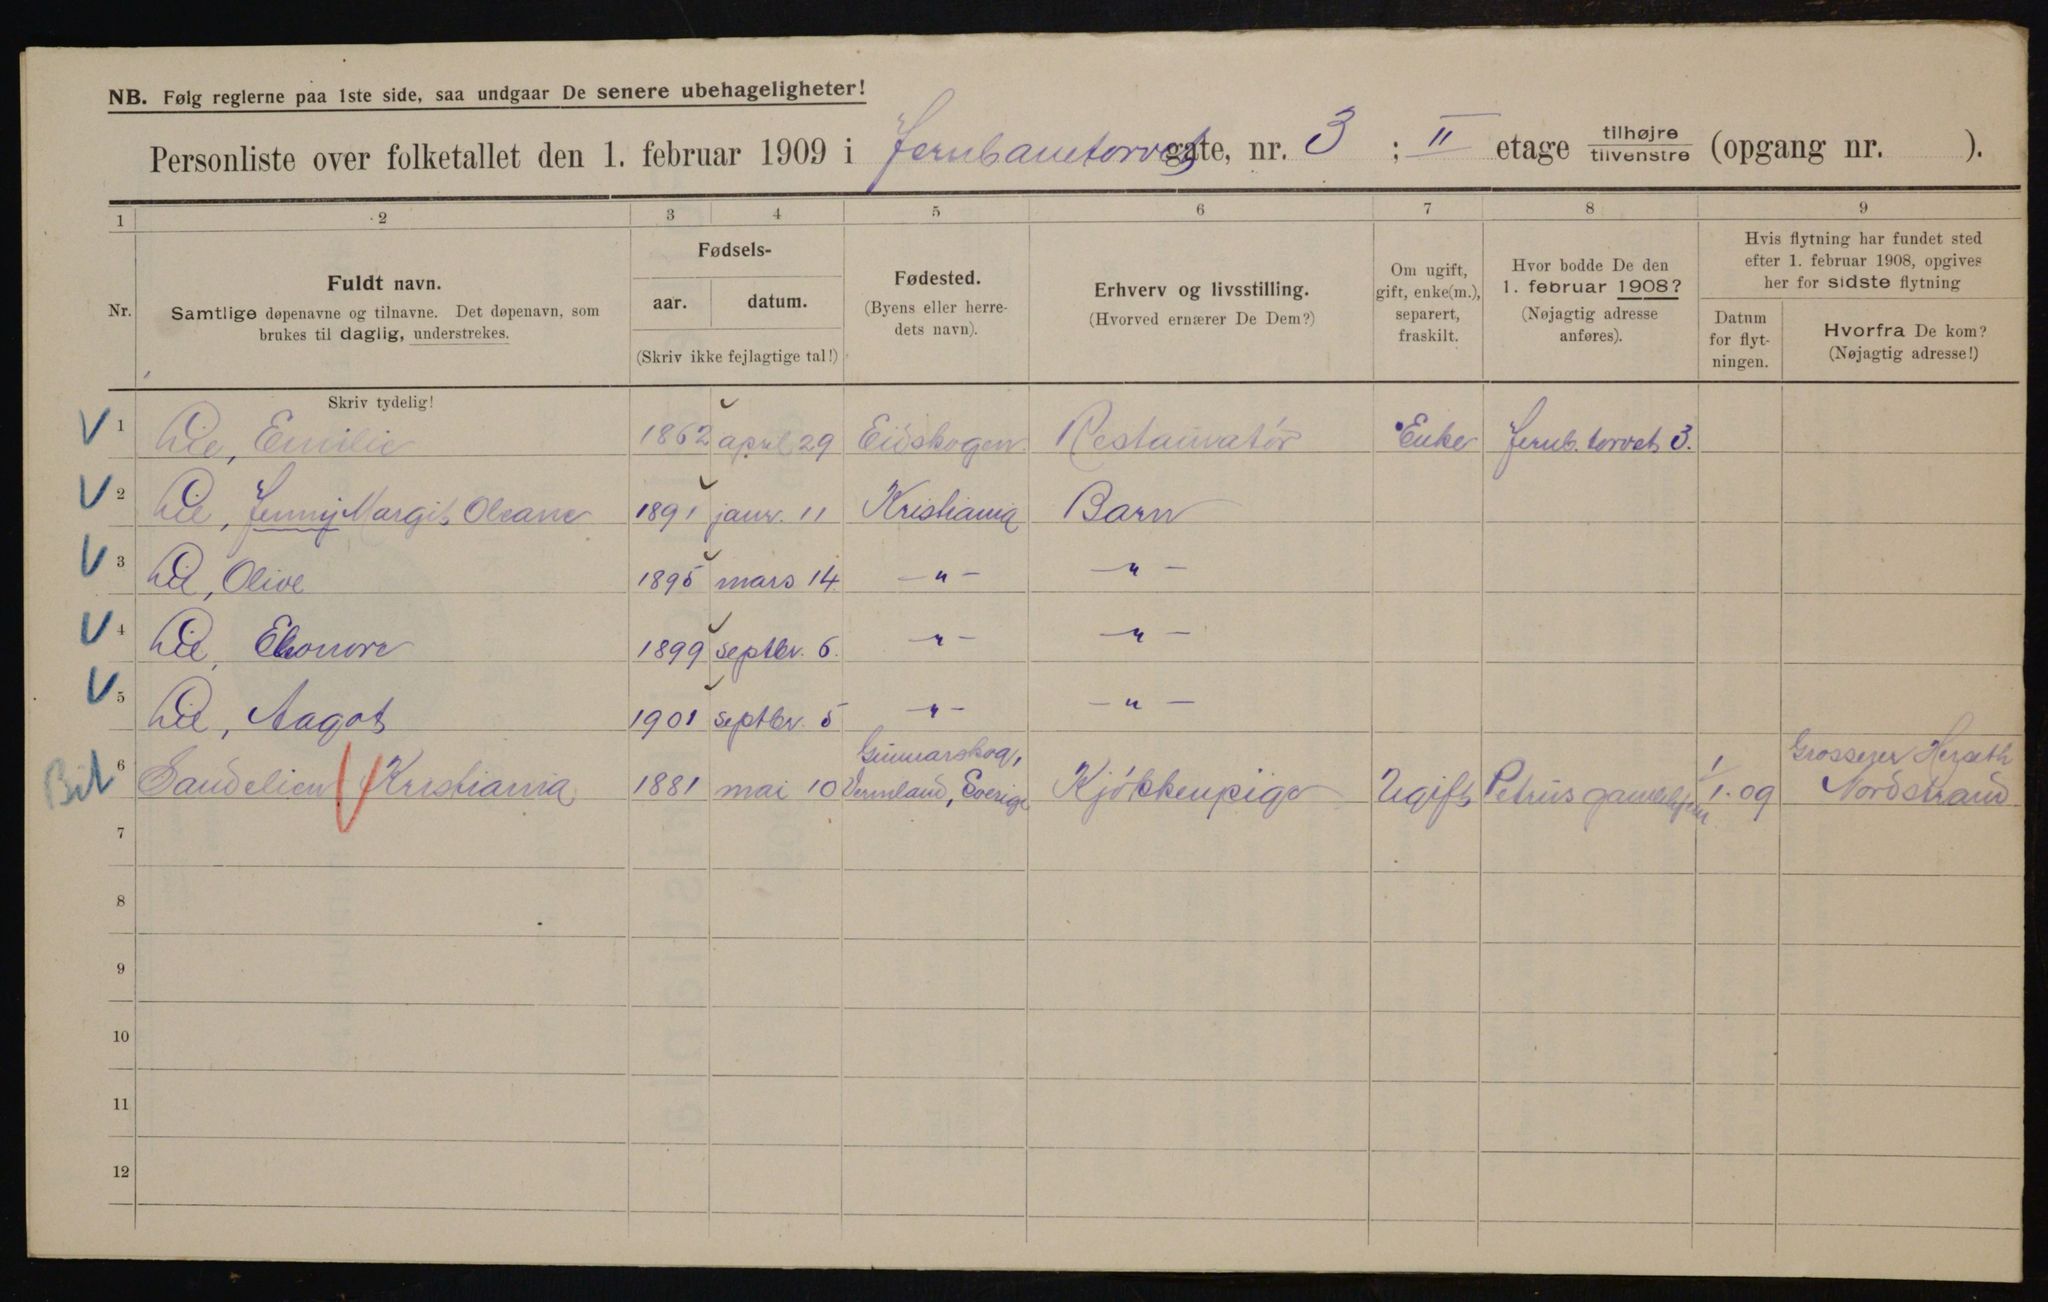 NB. Følg reglerne paa 1ste side, saa undgaar De senere ubehageligheter!
Personliste over folketallet den 1. februar 1909 i Jernbanetorvet gate, nr. 3; II etage tilhøjre tilvenstre (opgang nr. ).
1 2 3 4 5 6 7 8 9
Nr.
Fuldt navn.
Samtlige døpenavne og tilnavne. Det døpenavn, som
brukes til daglig, understrekes.
Skriv tydelig!
Fødsels-
aar. datum.
(Skriv ikke fejlagtige tal!)
Fødested.
(Byens eller herre-
dets navn).
Erhverv og livsstilling.
(Hvorved ernærer De Dem?)
Om ugift,
gift, enke(m.),
separert,
fraskilt.
Hvor bodde De den
1. februar 1908?
(Nøjagtig adresse
anføres).
Hvis flytning har fundet sted
efter 1. februar 1908, opgives
her for sidste flytning
Datum
for flyt-
ningen.
Hvorfra De kom?
(Nøjagtig adresse!)
V 1 Lie, Emilie 1862 april 29 Eidskogen Restauratør Enke Jernb. torvet 3.
V 2 Lie, Jenny Margit Oleane 1891 janr. 11 Kristiania Barn
V 3 Lie, Olive 1895 mars 14. —"— —"—
V 4 Lie, Elonore 1899 septbr. 6. —"— —"—
V 5 Lie, Aagot 1901 septbr. 5 —"— —"—
Gunnarskog, Grosserer Herseth
6 Sandelien Kristiania 1881 mai 10 Vermland, Sverige Kjøkkenpige Ugift Petrus 1/1. 09 Nordstrand
7
8
9
10
11
12